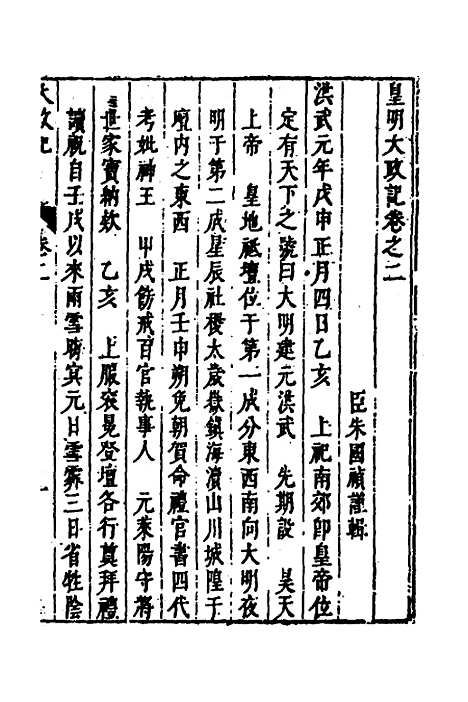 皇明大政記卷之二
臣朱國禎謹輯
洪武元年戊申正月四日乙亥　上祀南郊卽皇帝位
定有天下之號曰大明建元洪武　先期設　昊天
上帝　皇地祗壇位于第一成分東西南向大明夜
明于第二成星辰社稷太歲嶽鎮海瀆山川城隍于
壝內之東西　正月壬申朔免朝賀命禮官書四代
考妣神主　甲戌飭戒百官執事人　元萊陽守將
世家寶納欵　乙亥　上服衮冕登壇各行奠拜禮
讀祝自壬戌以來雨雪晦冥元日雪霽三日省牲陰
大政記　卷二　一